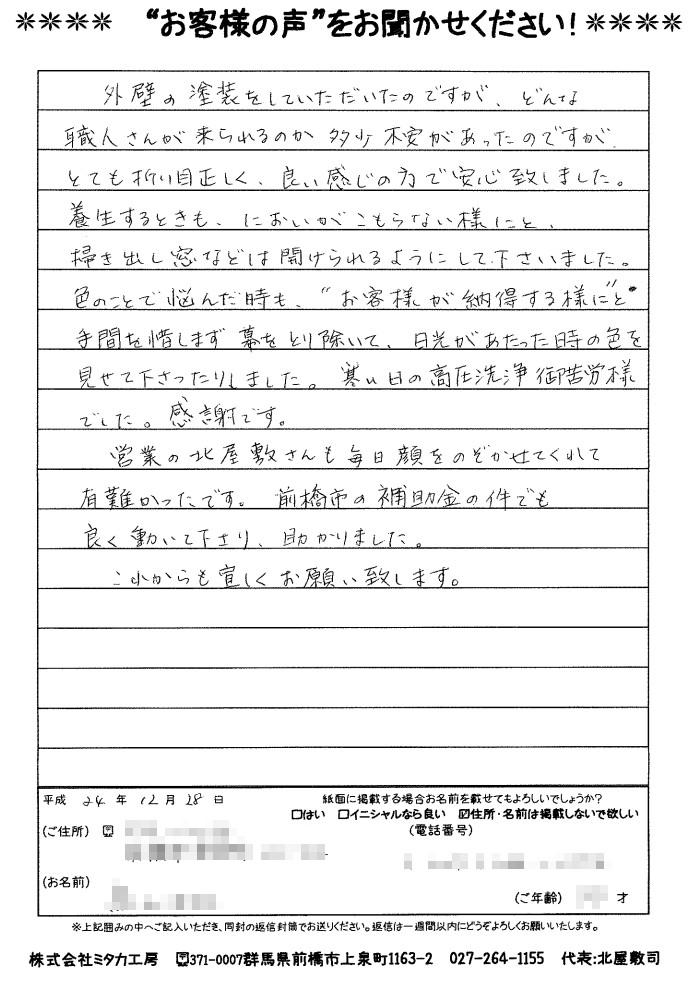 **** “お客様の声”をお聞かせください! ****
外壁の塗装をしていただいたのですが、どんな
職人さんが来られるのか多少不安があったのですが、
とても折り目正しく、良い感じの方で安心致しました。
養生するときも、においがこもらない様にと、
掃き出し窓などは開けられるようにして下さいました。
色のことで悩んだ時も、“お客様が納得する様に”と
手間を惜しまず幕をとり除いて、日光があたった時の色を
見せて下さったりしました。寒い日の高圧洗浄御苦労様
でした。感謝です。
営業の北屋敷さんも毎日顔をのぞかせてくれて
有難かったです。前橋市の補助金の件でも
良く動いて下さり、助かりました。
これからも宜しくお願い致します。
平成 24 年 12月 28 日
紙面に掲載する場合お名前を載せてもよろしいでしょうか?
□はい □イニシャルなら良い ☑住所・名前は掲載しないで欲しい
(ご住所) 〒
(電話番号)
(お名前)
(ご年齢) 才
※上記囲みの中へご記入いただき、同封の返信封筒でお送りください。返信は一週間以内にどうぞよろしくお願いいたします。
株式会社ミタカ工房 〒371-0007群馬県前橋市上泉町1163-2 027-264-1155 代表:北屋敷司